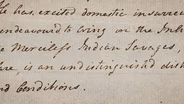 He has excited domestic insurre
endeavoured to bring on the Inh
Merciless Indian Savages,
is an undistinguished dest
and Conditions.